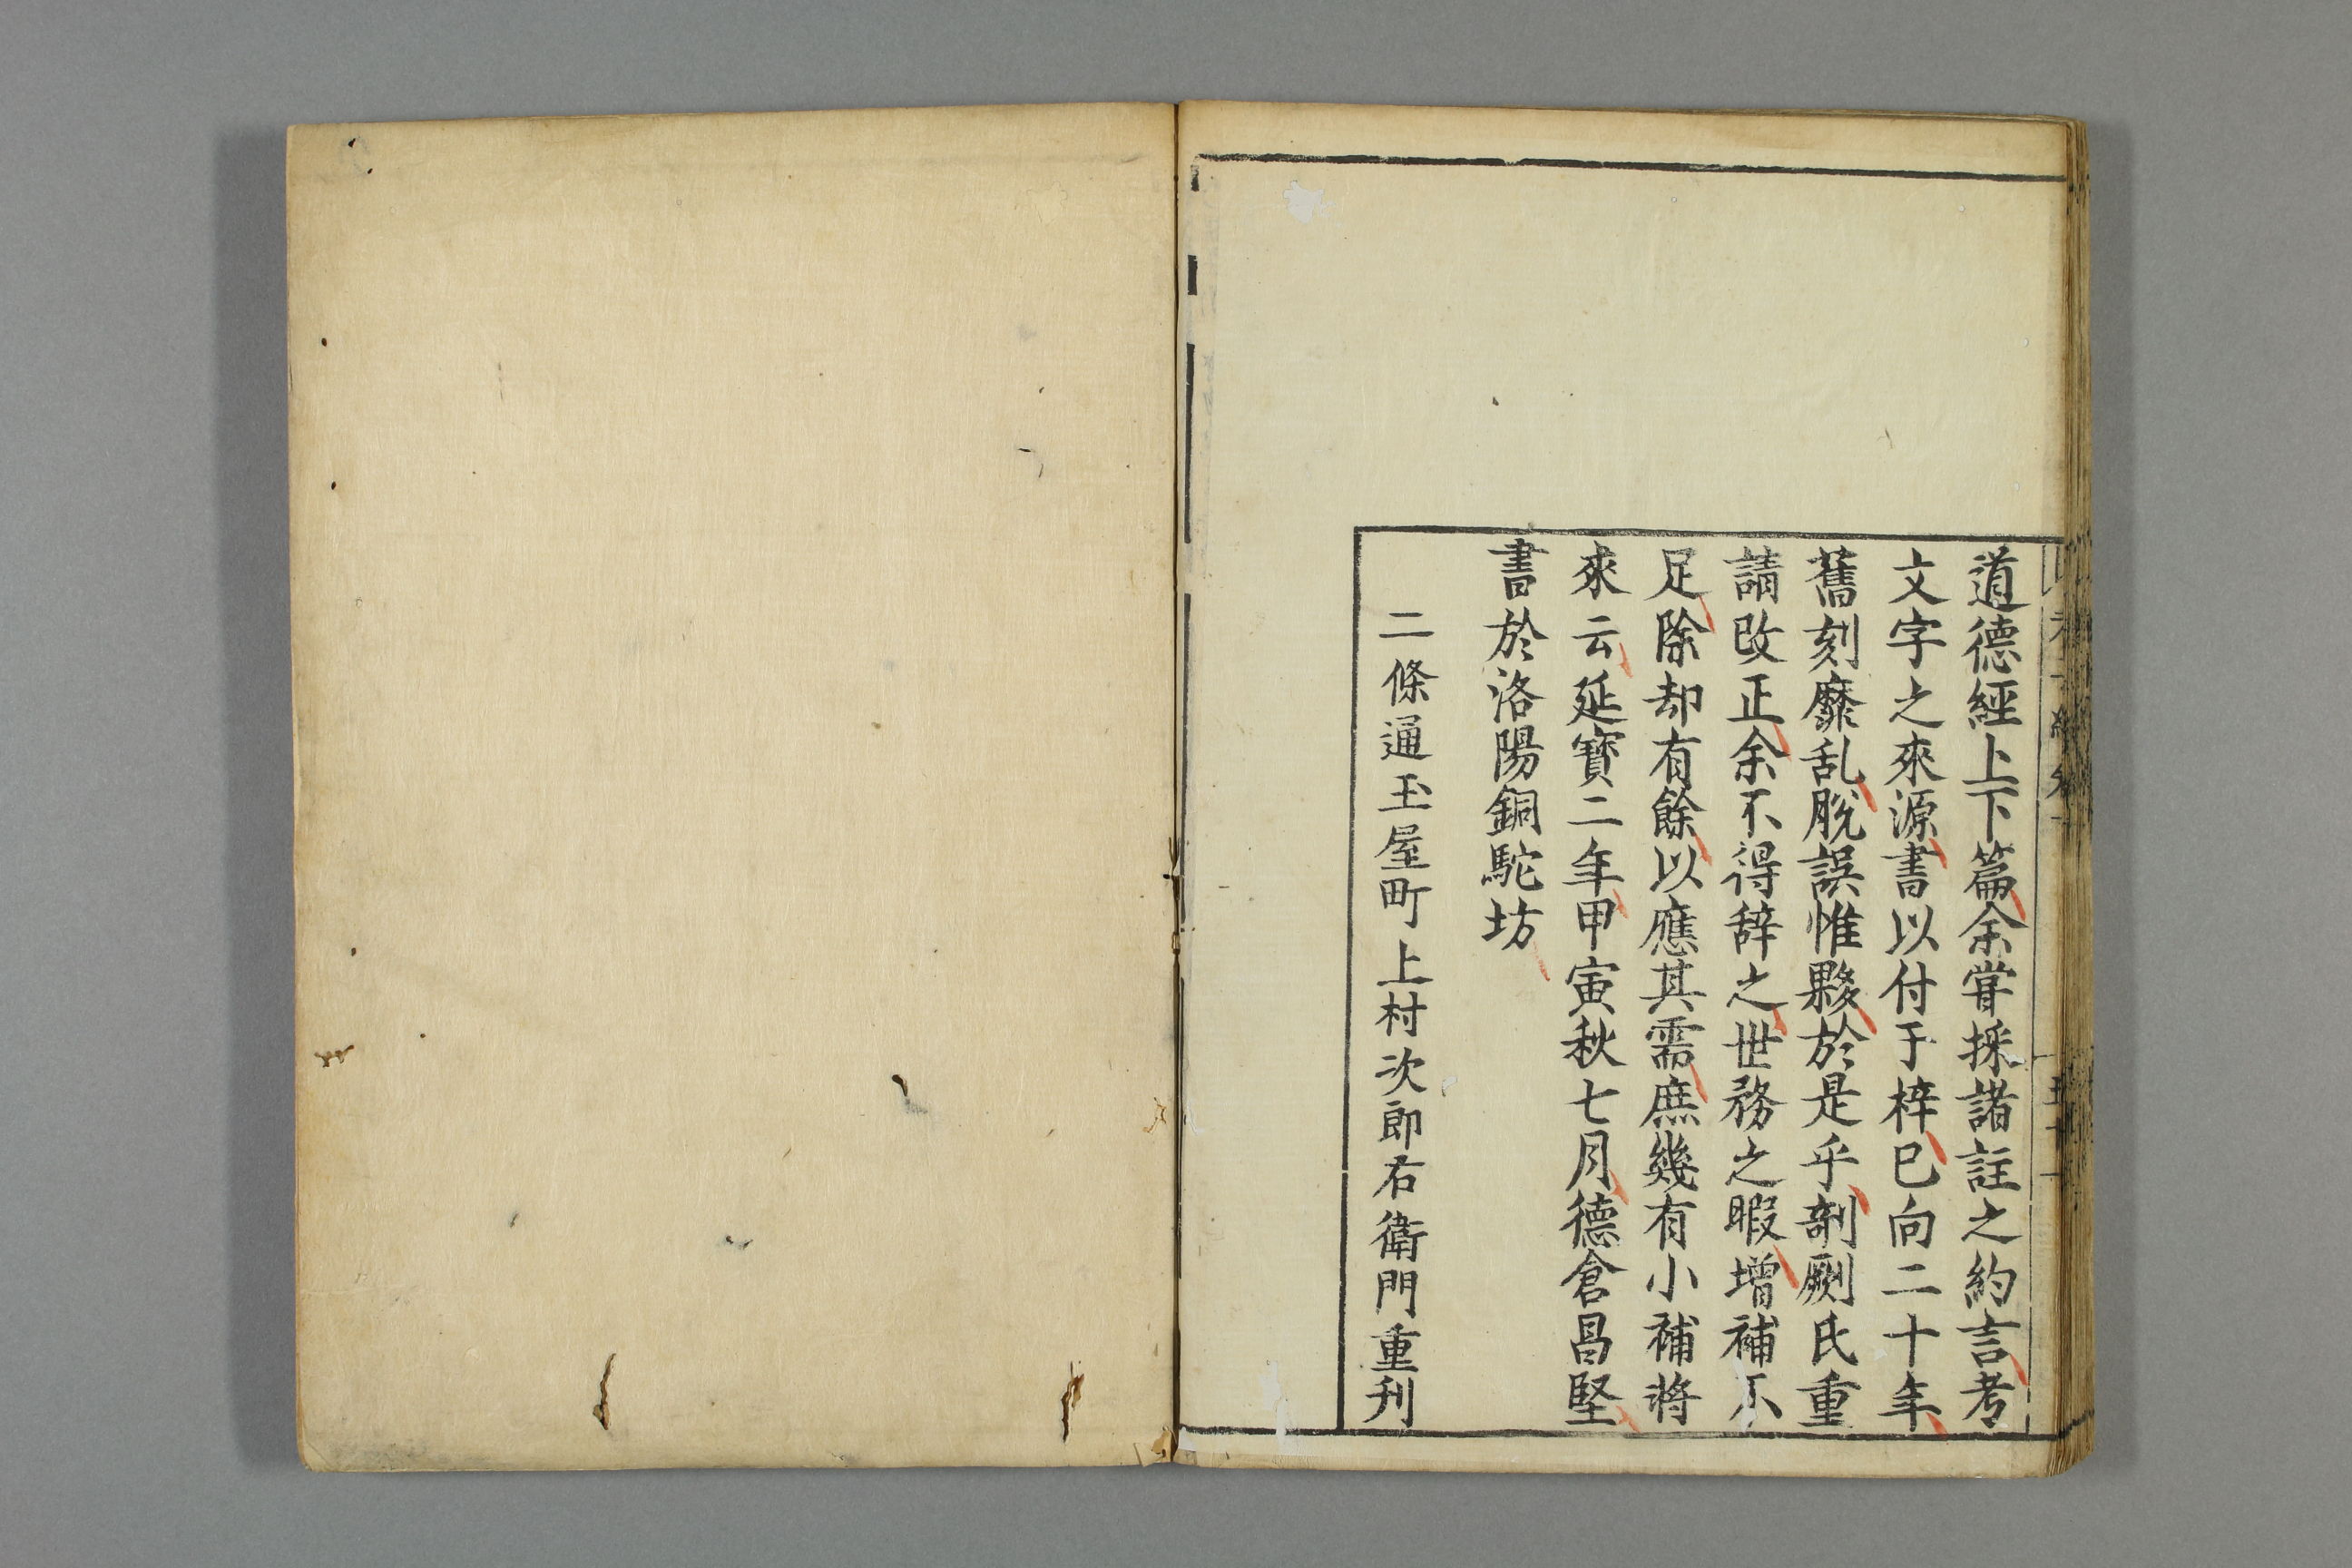 道德經上下篇余甞採諸註之約言考
文字之來源書以付于梓已向二十年
舊刻靡乱脫誤惟夥於是乎剞劂氏重
請改正余不得辞之世務之暇增補不
足除却有餘以應其需庶幾有小補將
來云延寶二年甲寅秋七月德倉昌堅
書於洛陽銅駝坊
二條通玉屋町上村次郎右衛門重刋